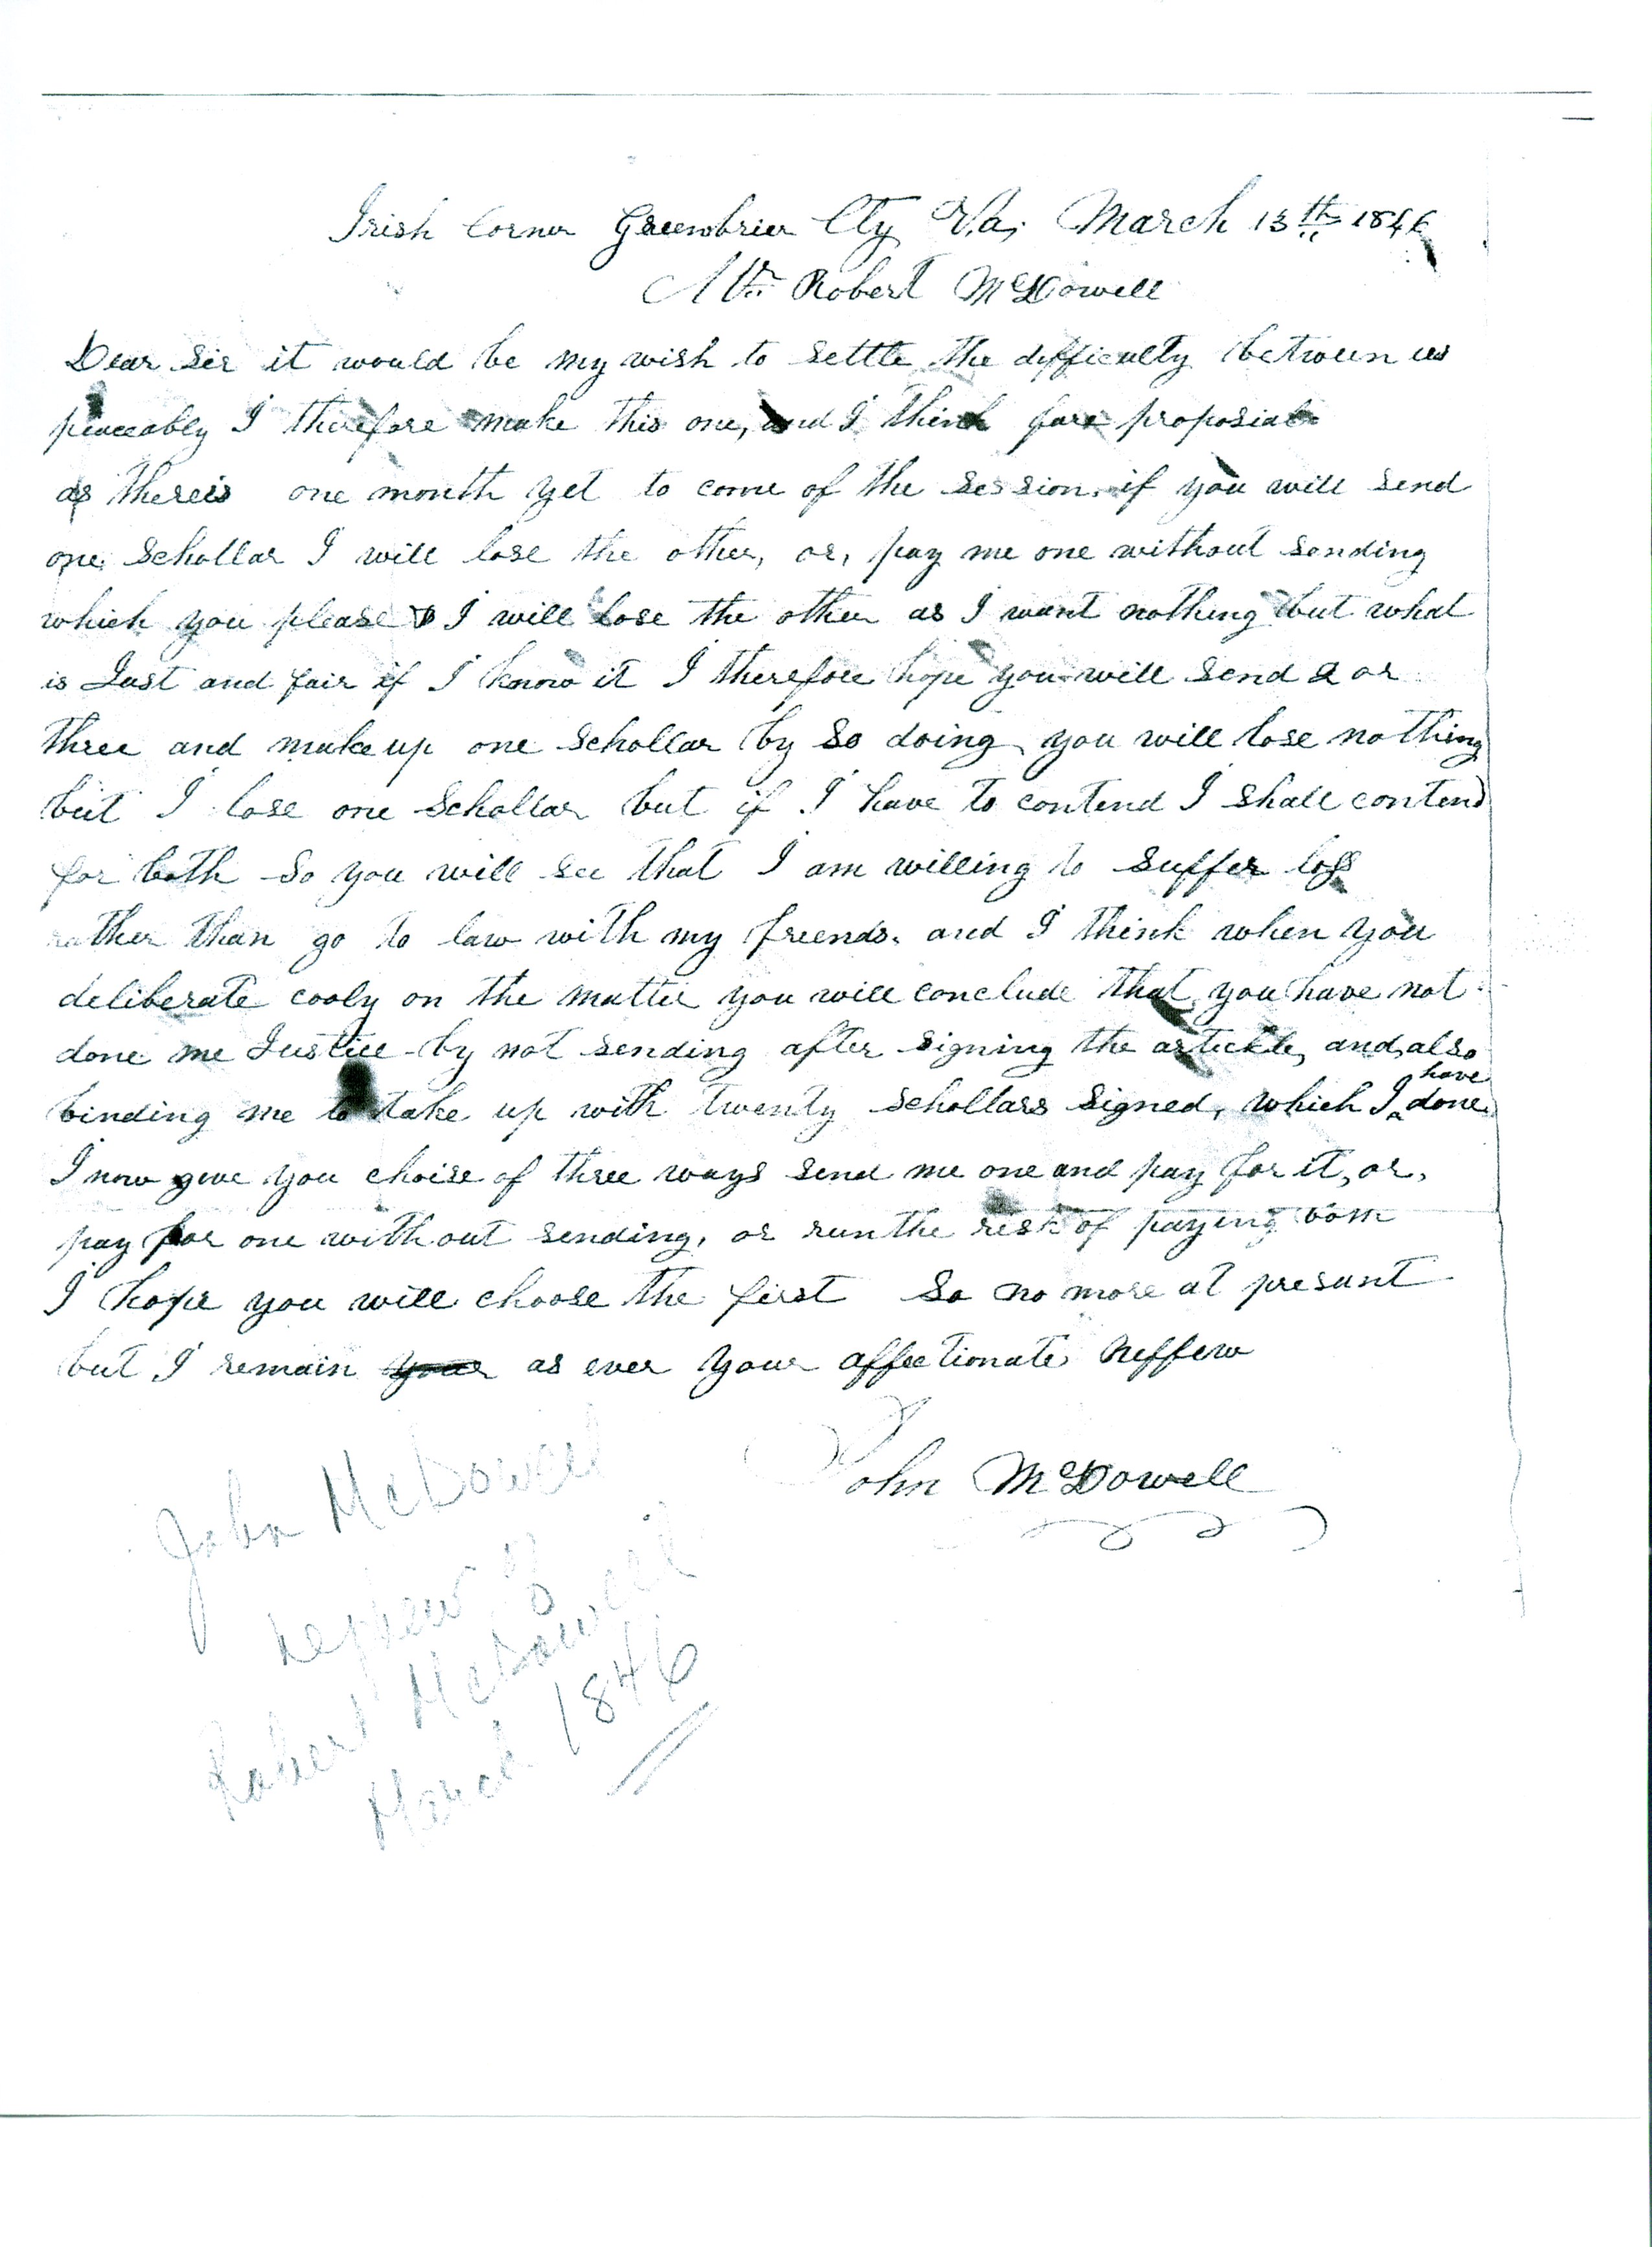 Irish Corner Greenbrier Cty Va; March 13th 1846
Mr. Robert McDowell
Dear Sir it would be my wish to settle the difficulty between us
peaceably I therefore make this one, and I think fare proposial
as thereis one month yet to come of the session. if you will send
one schollar I will lose the other, or, pay me one without sending
which you please & I will lose the other as I want nothing but what
is Just and fair if I know it I therefore hope you will send 2 or
three and make up one schollar by so doing you will lose nothing
but I lose one schollar but if I have to contend I shall contend
for both so you will see that I am willing to suffer loss
rather than go to law with my friends. and I think when you
deliberate cooly on the matter you will conclude that you have not
done me Justice by not sending after signing the artickle, and also
binding me to take up with twenty schollars signed, which I have done.
I now give you choise of three ways send me one and pay for it, or,
pay for one without sending, or run the risk of paying both
I hope you will choose the first So no more at present
but I remain your as ever your affectionate neffew
John McDowell
John McDowell
nephew of
Robert McDowell
March 1846